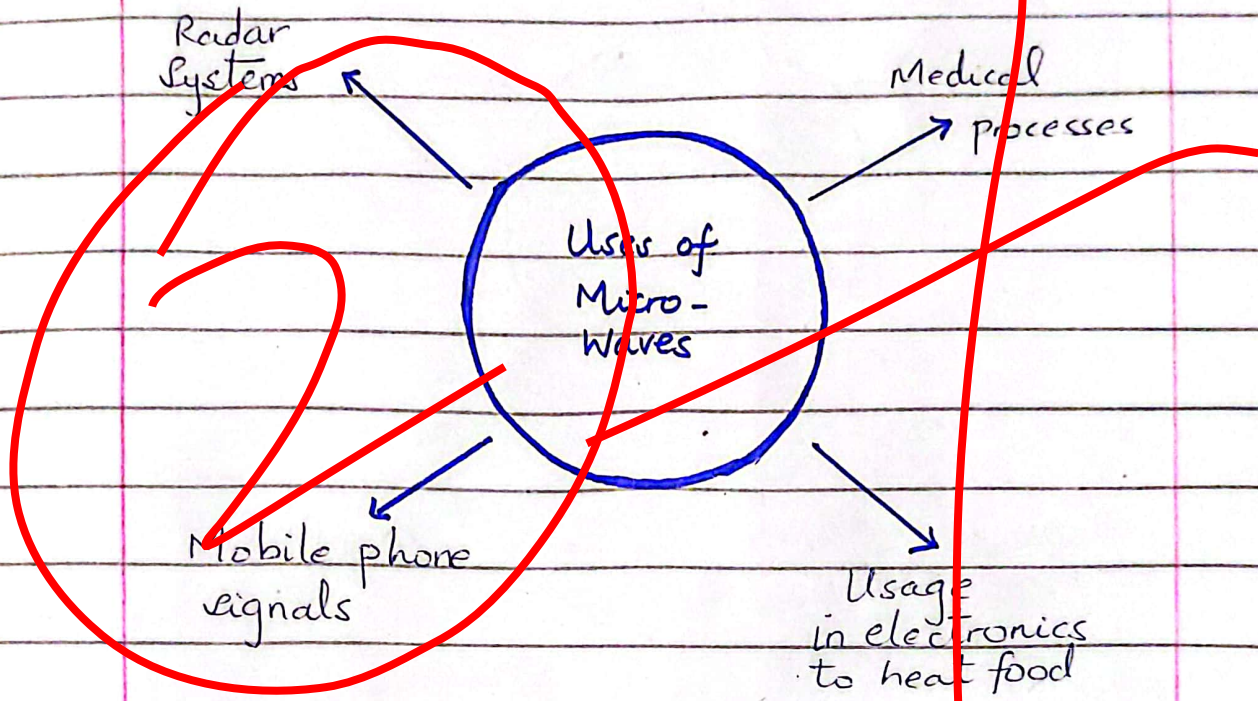 Radar
Systems
Medical
processes
Uses of
Micro-
Waves
Mobile phone
signals
Usage
in electronics
to heat food
2